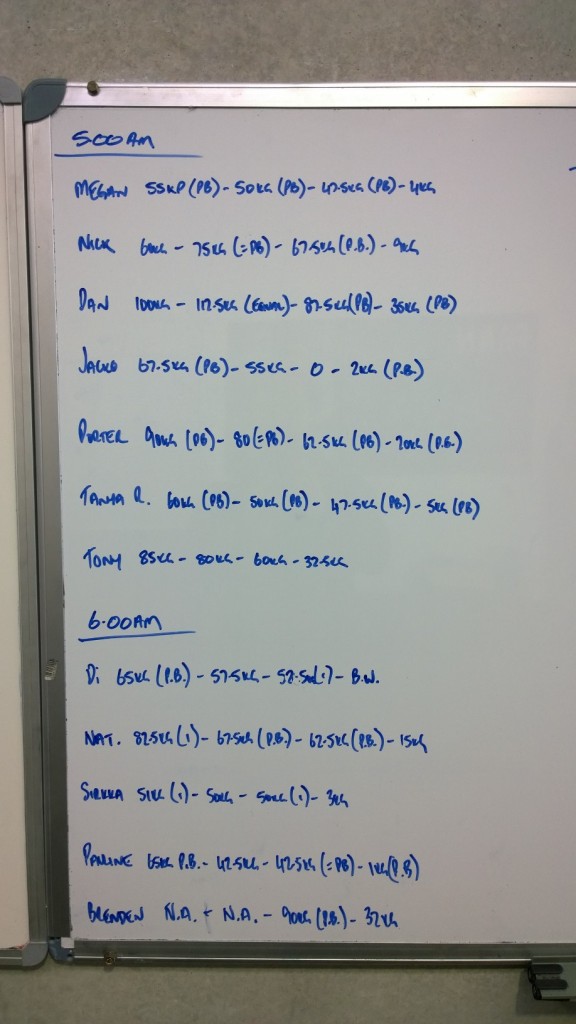 5.00AM
MEGAN 55KP (PB) - 50KG (PB) - 47.5KG (PB) - 4KG
NICK 60KG - 75KG (=PB) - 67.5KG (P.B.) - 9KG
DAN 100KG - 117.5KG (EQUAL) - 87.5KG (PB) - 35KG (PB)
JACKO 67.5KG (PB) - 55KG - 0 - 2KG (P.B.)
PORTER 90KG (PB) - 80 (=PB) - 62.5KG (PB) - 20KG (P.B.)
TANYA R. 60KG (PB) - 50KG (PB) - 47.5KG (PB.) - 5KG (PB)
TONY 85KG - 80KG - 60KG - 32.5KG
6.00AM
Di 65KG (P.B.) - 57.5KG - - B.W.
NAT. 82.5KG (1) - 67.5KG (P.B.) - 62.5KG (P.B.) - 15KG
SIRKKA 51KG (1) - 50KG - 50KG (1) - 3KG
PAULINE 65KG P.B. - 42.5KG - 42.5KG (=PB) - 1KG (P.B)
BRENDEN N.A. - N.A. - 90KG (P.B.) - 32KG